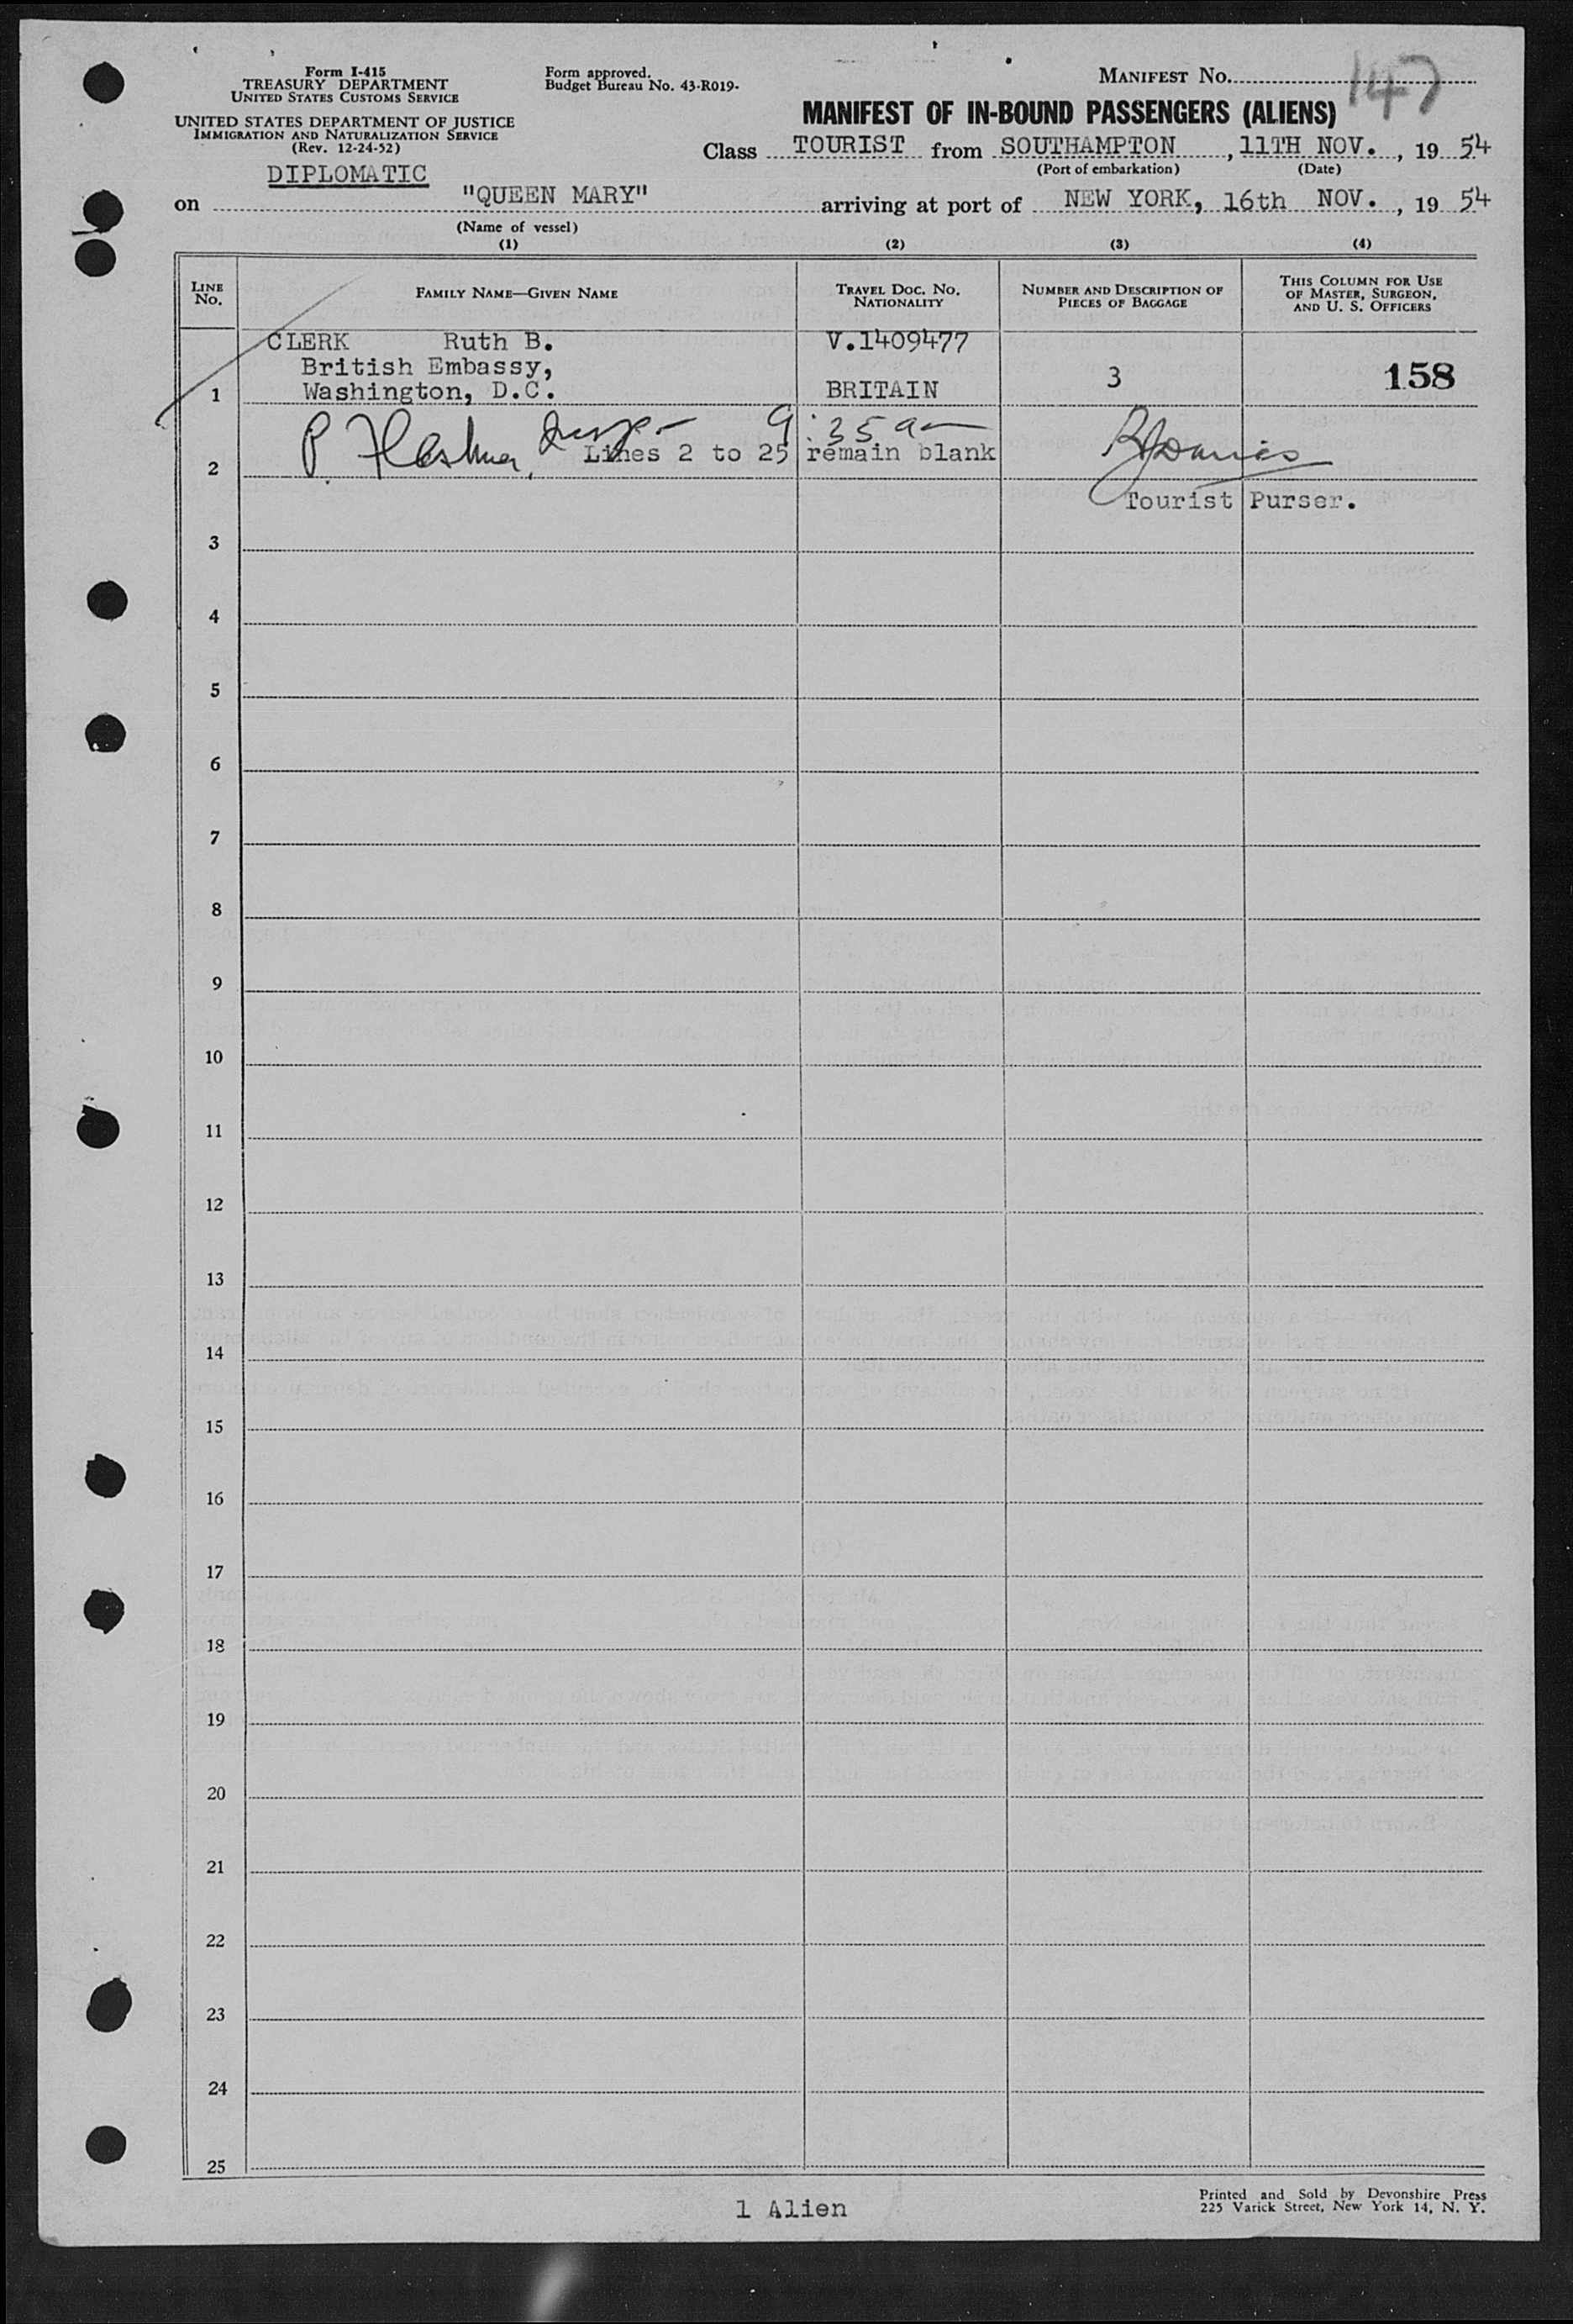 Form I-415
TREASURY DEPARTMENT
UNITED STATES CUSTOMS SERVICE
UNITED STATES DEPARTMENT OF JUSTICE
IMMIGRATION AND NATURALIZATION SERVICE
(Rev. 12-24-52)
Form approved.
Budget Bureau No. 43-R019.
MANIFEST No. 147
MANIFEST OF IN-BOUND PASSENGERS (ALIENS)
Class TOURIST from SOUTHAMPTON, 11TH NOV., 19 54
(Port of embarkation) (Date)
DIPLOMATIC
on "QUEEN MARY" arriving at port of NEW YORK, 16th NOV., 19 54
(Name of vessel)
(1) (2) (3) (4)
LINE No. FAMILY NAME—GIVEN NAME TRAVEL DOC. NO. NATIONALITY NUMBER AND DESCRIPTION OF PIECES OF BAGGAGE THIS COLUMN FOR USE OF MASTER, SURGEON, AND U. S. OFFICERS
CLERK Ruth B. V.1409477
British Embassy,
1 Washington, D.C. BRITAIN 3 158
9:35 am
2 Lines 2 to 25 remain blank
Tourist Purser.
3
4
5
6
7
8
9
10
11
12
13
14
15
16
17
18
19
20
21
22
23
24
25
1 Alien
Printed and Sold by Devonshire Press
225 Varick Street, New York 14, N. Y.